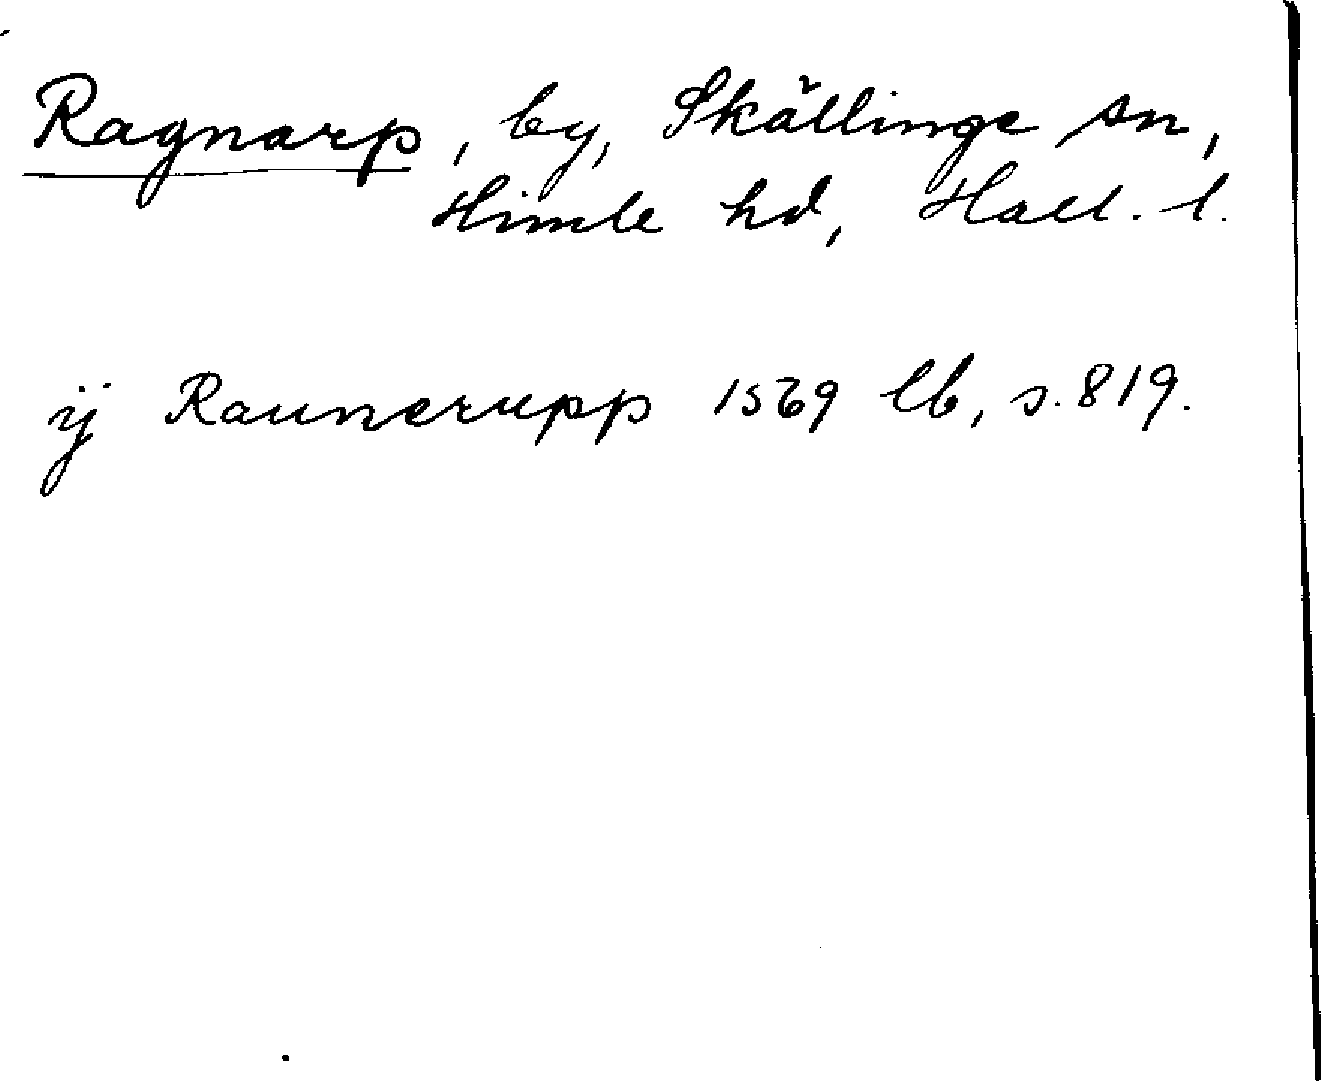 Ragnarp, by, Skällinge sn,
Himle hd, Hall. l.
ij Raunerupp 1569 lb, s. 819.